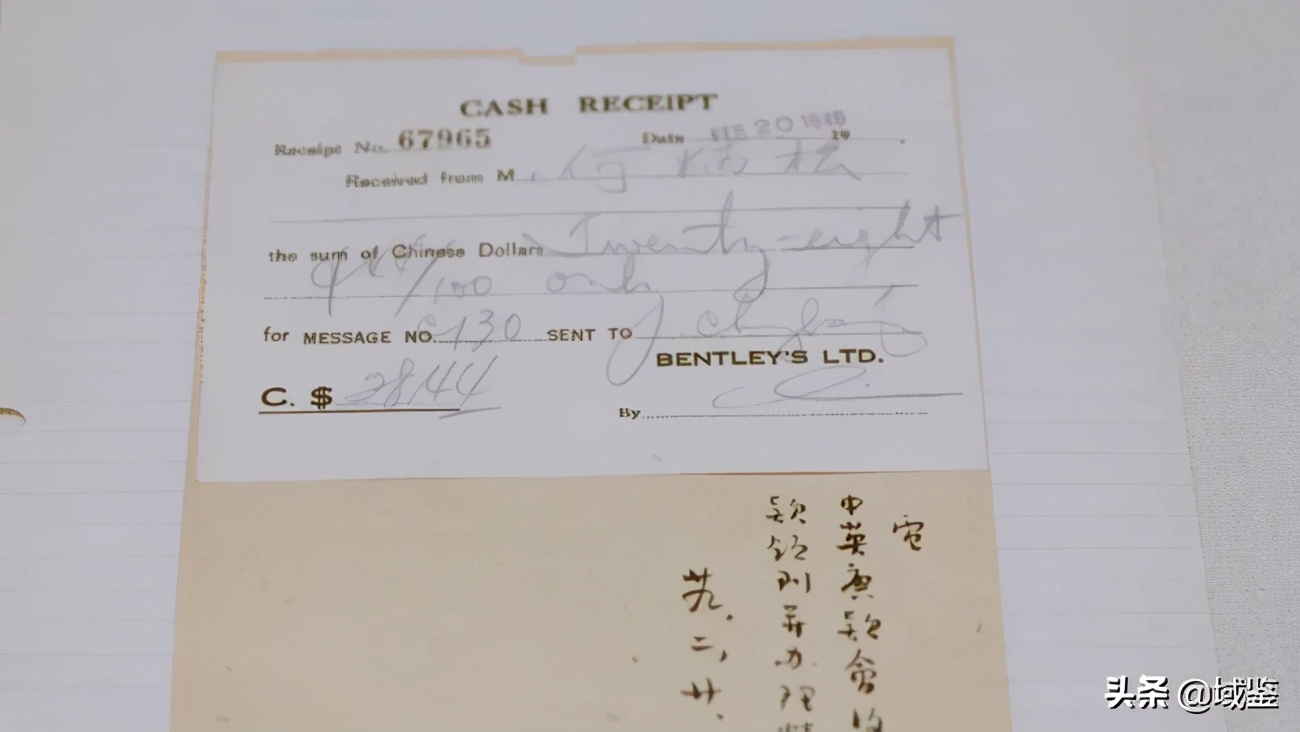 CASH RECEIPT
Receipt No. 67965 Date FEB 20 1940 19
Received from M 何炳松
the sum of Chinese Dollars Twenty-eight
44/100 only
for MESSAGE NO. 6130 SENT TO
BENTLEY'S LTD.
C. $ 28.44
By
電
中英庚款會收
款 弄 办理
廿九.二,廿.
头条 @域鉴